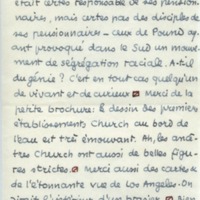 était certes responsable de ses pension-
naires, mais certes pas des disciples de
ses pensionnaires – ceux de Pound ay-
ant provoqué dans le Sud un mouve-
ment de ségrégation raciale. A-t-il
du génie ? C'est en tout cas quelqu'un
de vivant et de curieux Merci de la
petite brochure: le dessin des premiers
établissements Church au bord de
l'eau est très émouvant. Ah, les ancê-
tres Church ont aussi de belles figu-
res strictes Merci aussi des cartes
de l'étonnante vue de Los Angeles. On
dirait l'intérieur d'un brasier